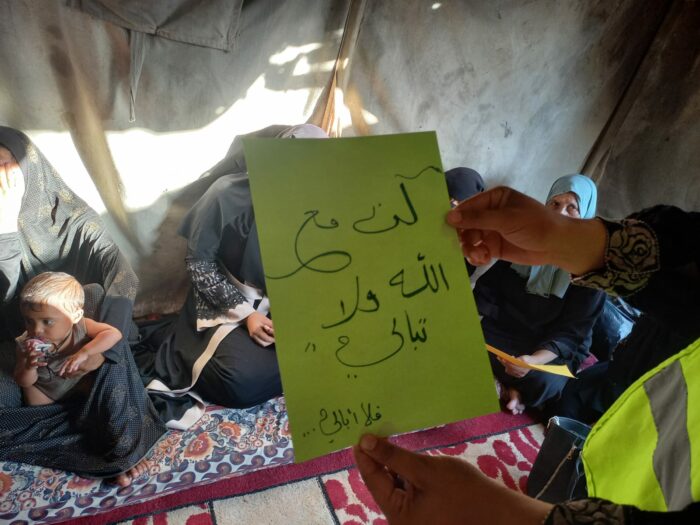 كن مع
الله ولا
تبالي "
فلا أبالي ...